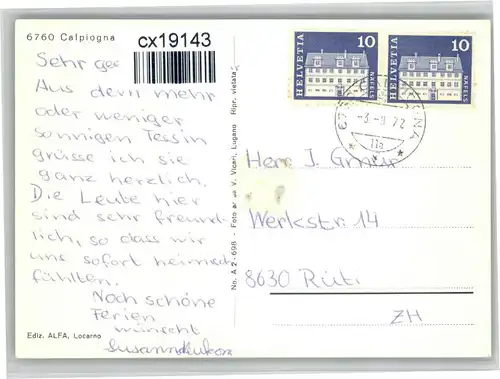 6760 Calpiogna
cx19143
Sehr gee
Aus dem mehr
oder weniger
sonnigen Tessin
grüsse ich sie
ganz herzlich.
Die Leute hier
sind sehr freund-
lich, so dass wir
uns sofort heimisch
fühlten.
Noch schöne
Ferien
wünscht
Ediz. ALFA, Locarno
No. A 2 - 698 - Foto V. Vicari, Lugano Ripr. vietata
HELVETIA 10 NÄFELS
HELVETIA 10 NÄFELS
-3.-9.72
11a
Herr J. Gmür
Werkstr. 14
8630 Rüti
ZH